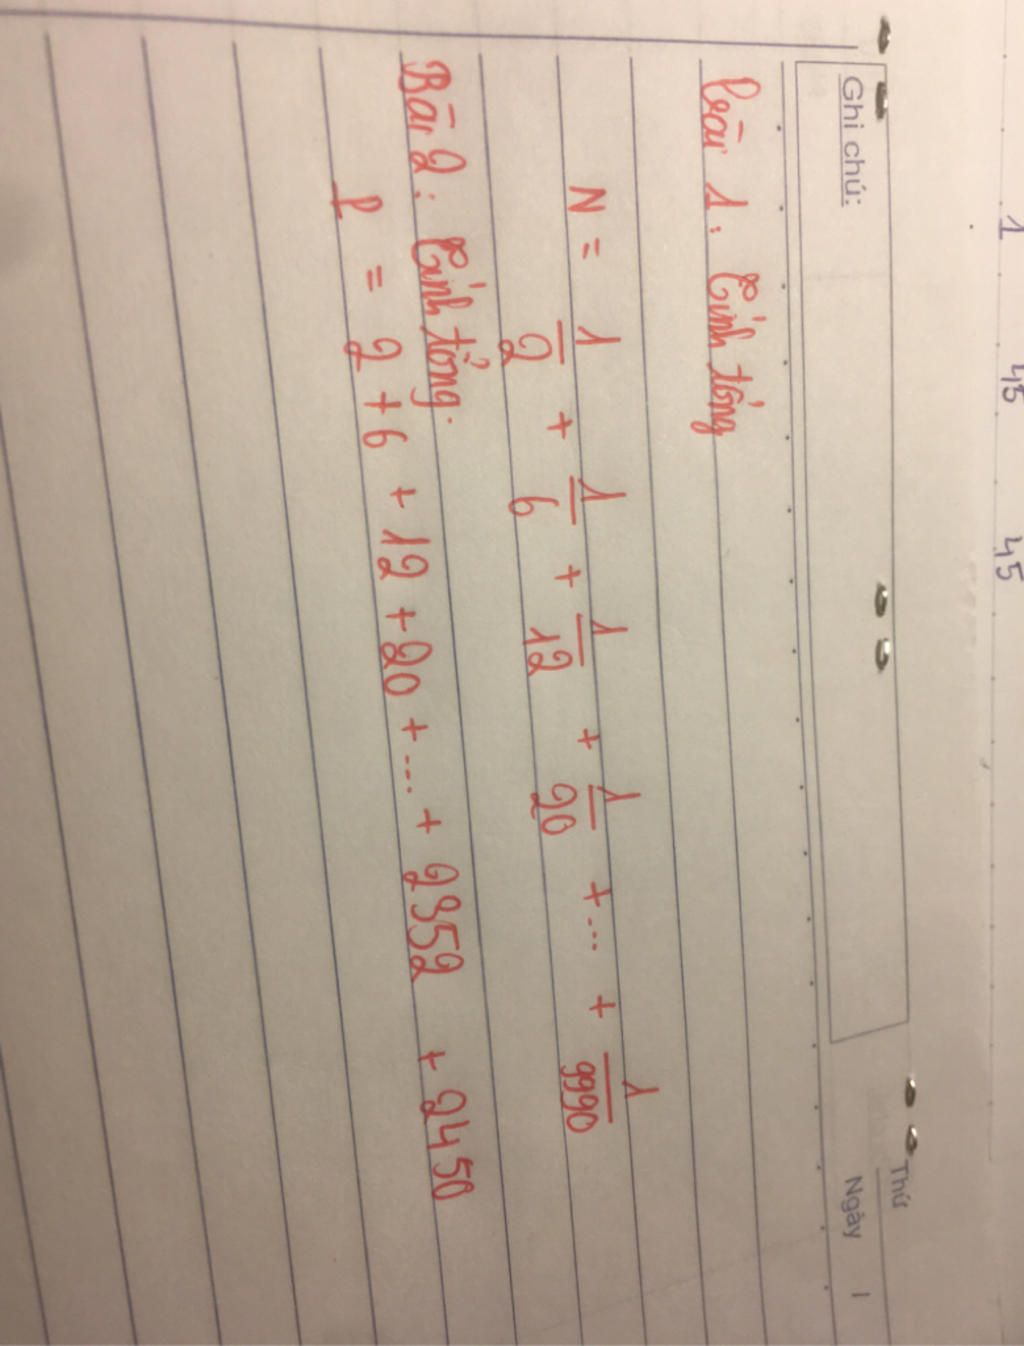 1 45 45
Thứ
Ghi chú:
Ngày 1
Bài 1: Tính tổng
N = 1/2 + 1/6 + 1/12 + 1/20 + ... + 1/9990
Bài 2: Tính tổng.
P = 2 + 6 + 12 + 20 + ... + 2352 + 2450